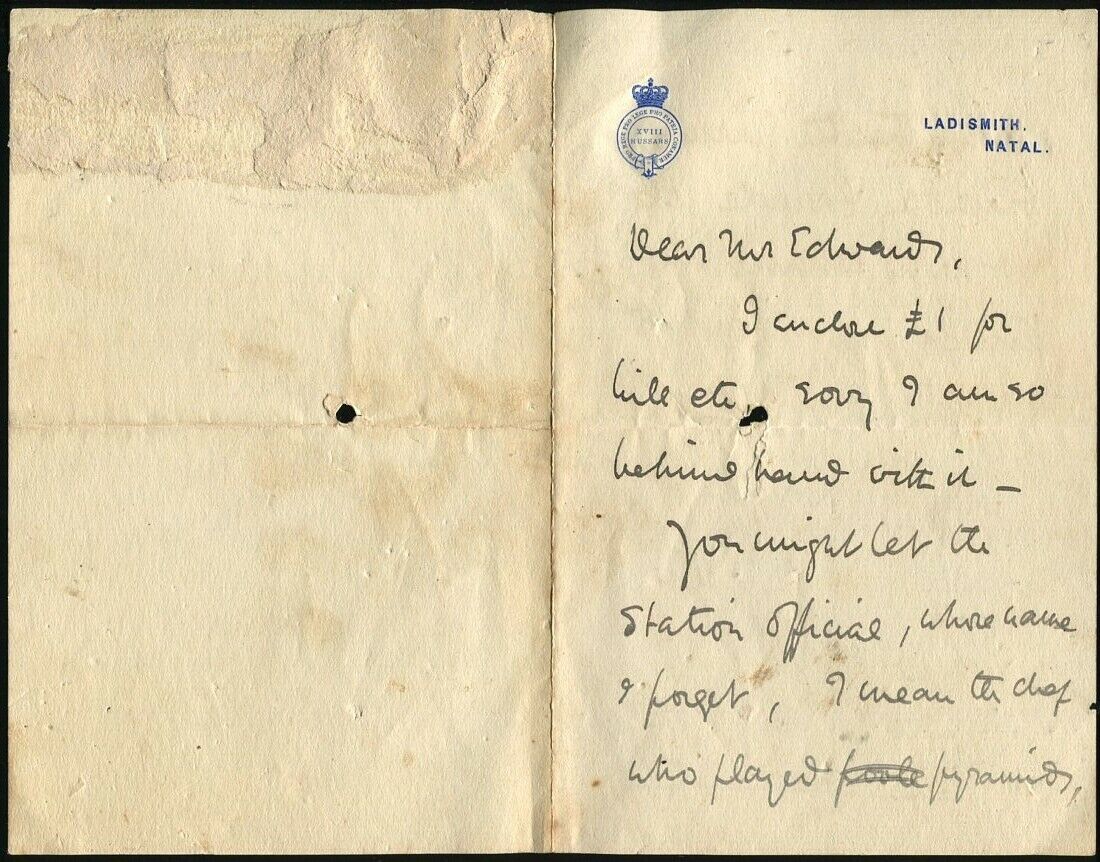 PRO REGE PRO LEGE PRO PATRIA CONAMUR
XVIII
HUSSARS
LADISMITH.
NATAL.
Dear Mr Edwards,
I enclose £1 for
bill etc, sorry I am so
behind hand with it –
You might let the
Station Official, whose name
I forget, I mean the chap
who played poole pyramids,